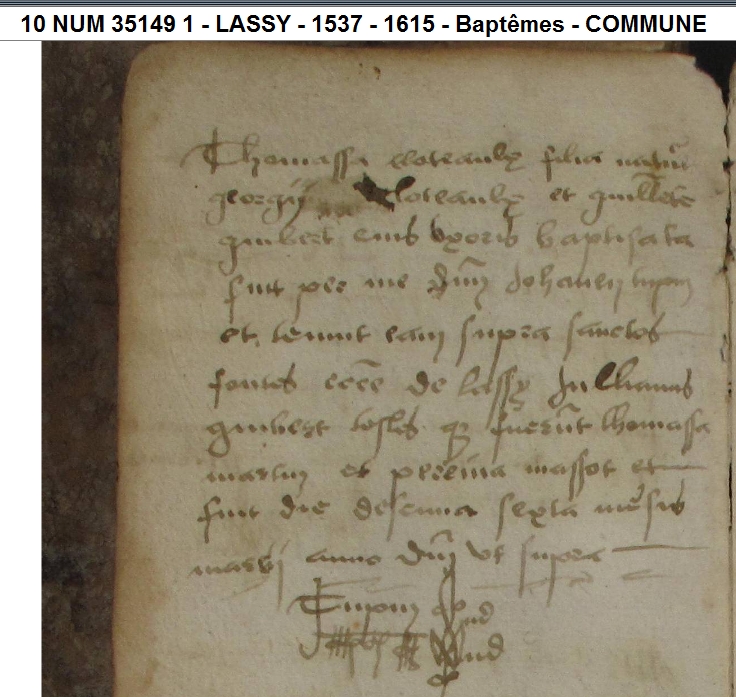 10 NUM 35149 1 - LASSY - 1537 - 1615 - Baptêmes - COMMUNE
Thomassa cloteaulx filia natur
georgij cloteaulx et guillete
guibert eius uxoris baptisata
fuit per me dnm Johanen tupon
et tenuit eam supra sanctos
fontes ecce de lassy Jullianus
guibert testes q fuerut thomassa
martin et perrina massot et
fuit die descima sexta mesis
marcij anno dni ut supra
Tupon